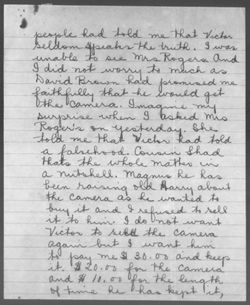 people had told me that Victor
seldom speaks the truth. I was
unable to see Mrs Rogers. And
I did not worry to much as
David Brown had promised me
faithfully that he would get
the camera. Imagine my
surprise when I asked Mrs
Roger's on yesterday. She
told me that Victor had told
a falsehood. Cousin Shad
thats the whole matter in
a nutshell. Magnus he has
been raising old Harry about
the camera as he wanted to
buy it and I refused to sell
it to him. I do not want
Victor to sell the camera
again but I want him
to pay me $30.00 and keep
it. $20.00 for the camera
and $10.00 for the length
of time he has kept it,